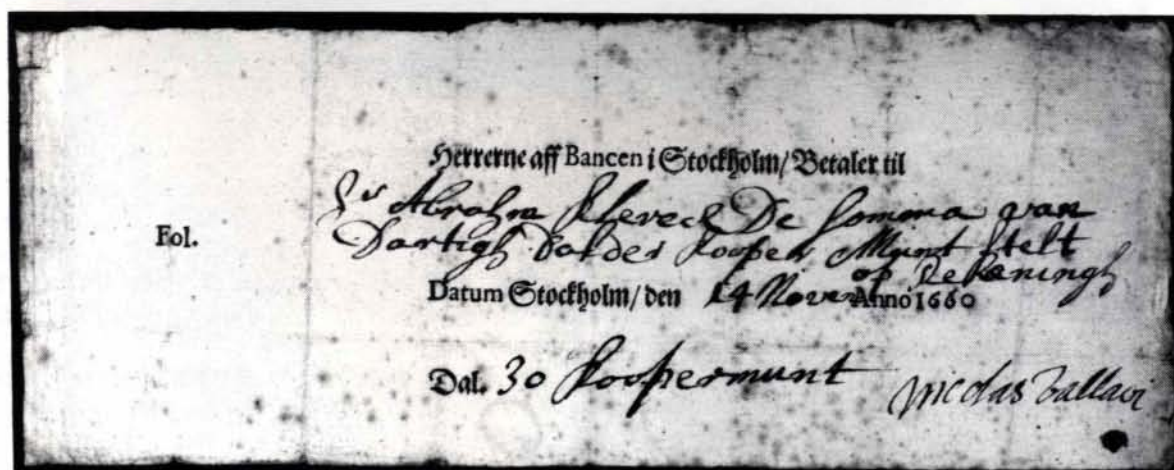 Herrerne aff Bancen i Stockholm/ Betaler til
Sr Abrahm De Somma van
Fol.
Dartigh Dalder Kooper Munt Stelt
op Rekeningh
Datum Stockholm/ den 14 Novem Anno 1660
Dal. 30 Koopermunt
Nicolas